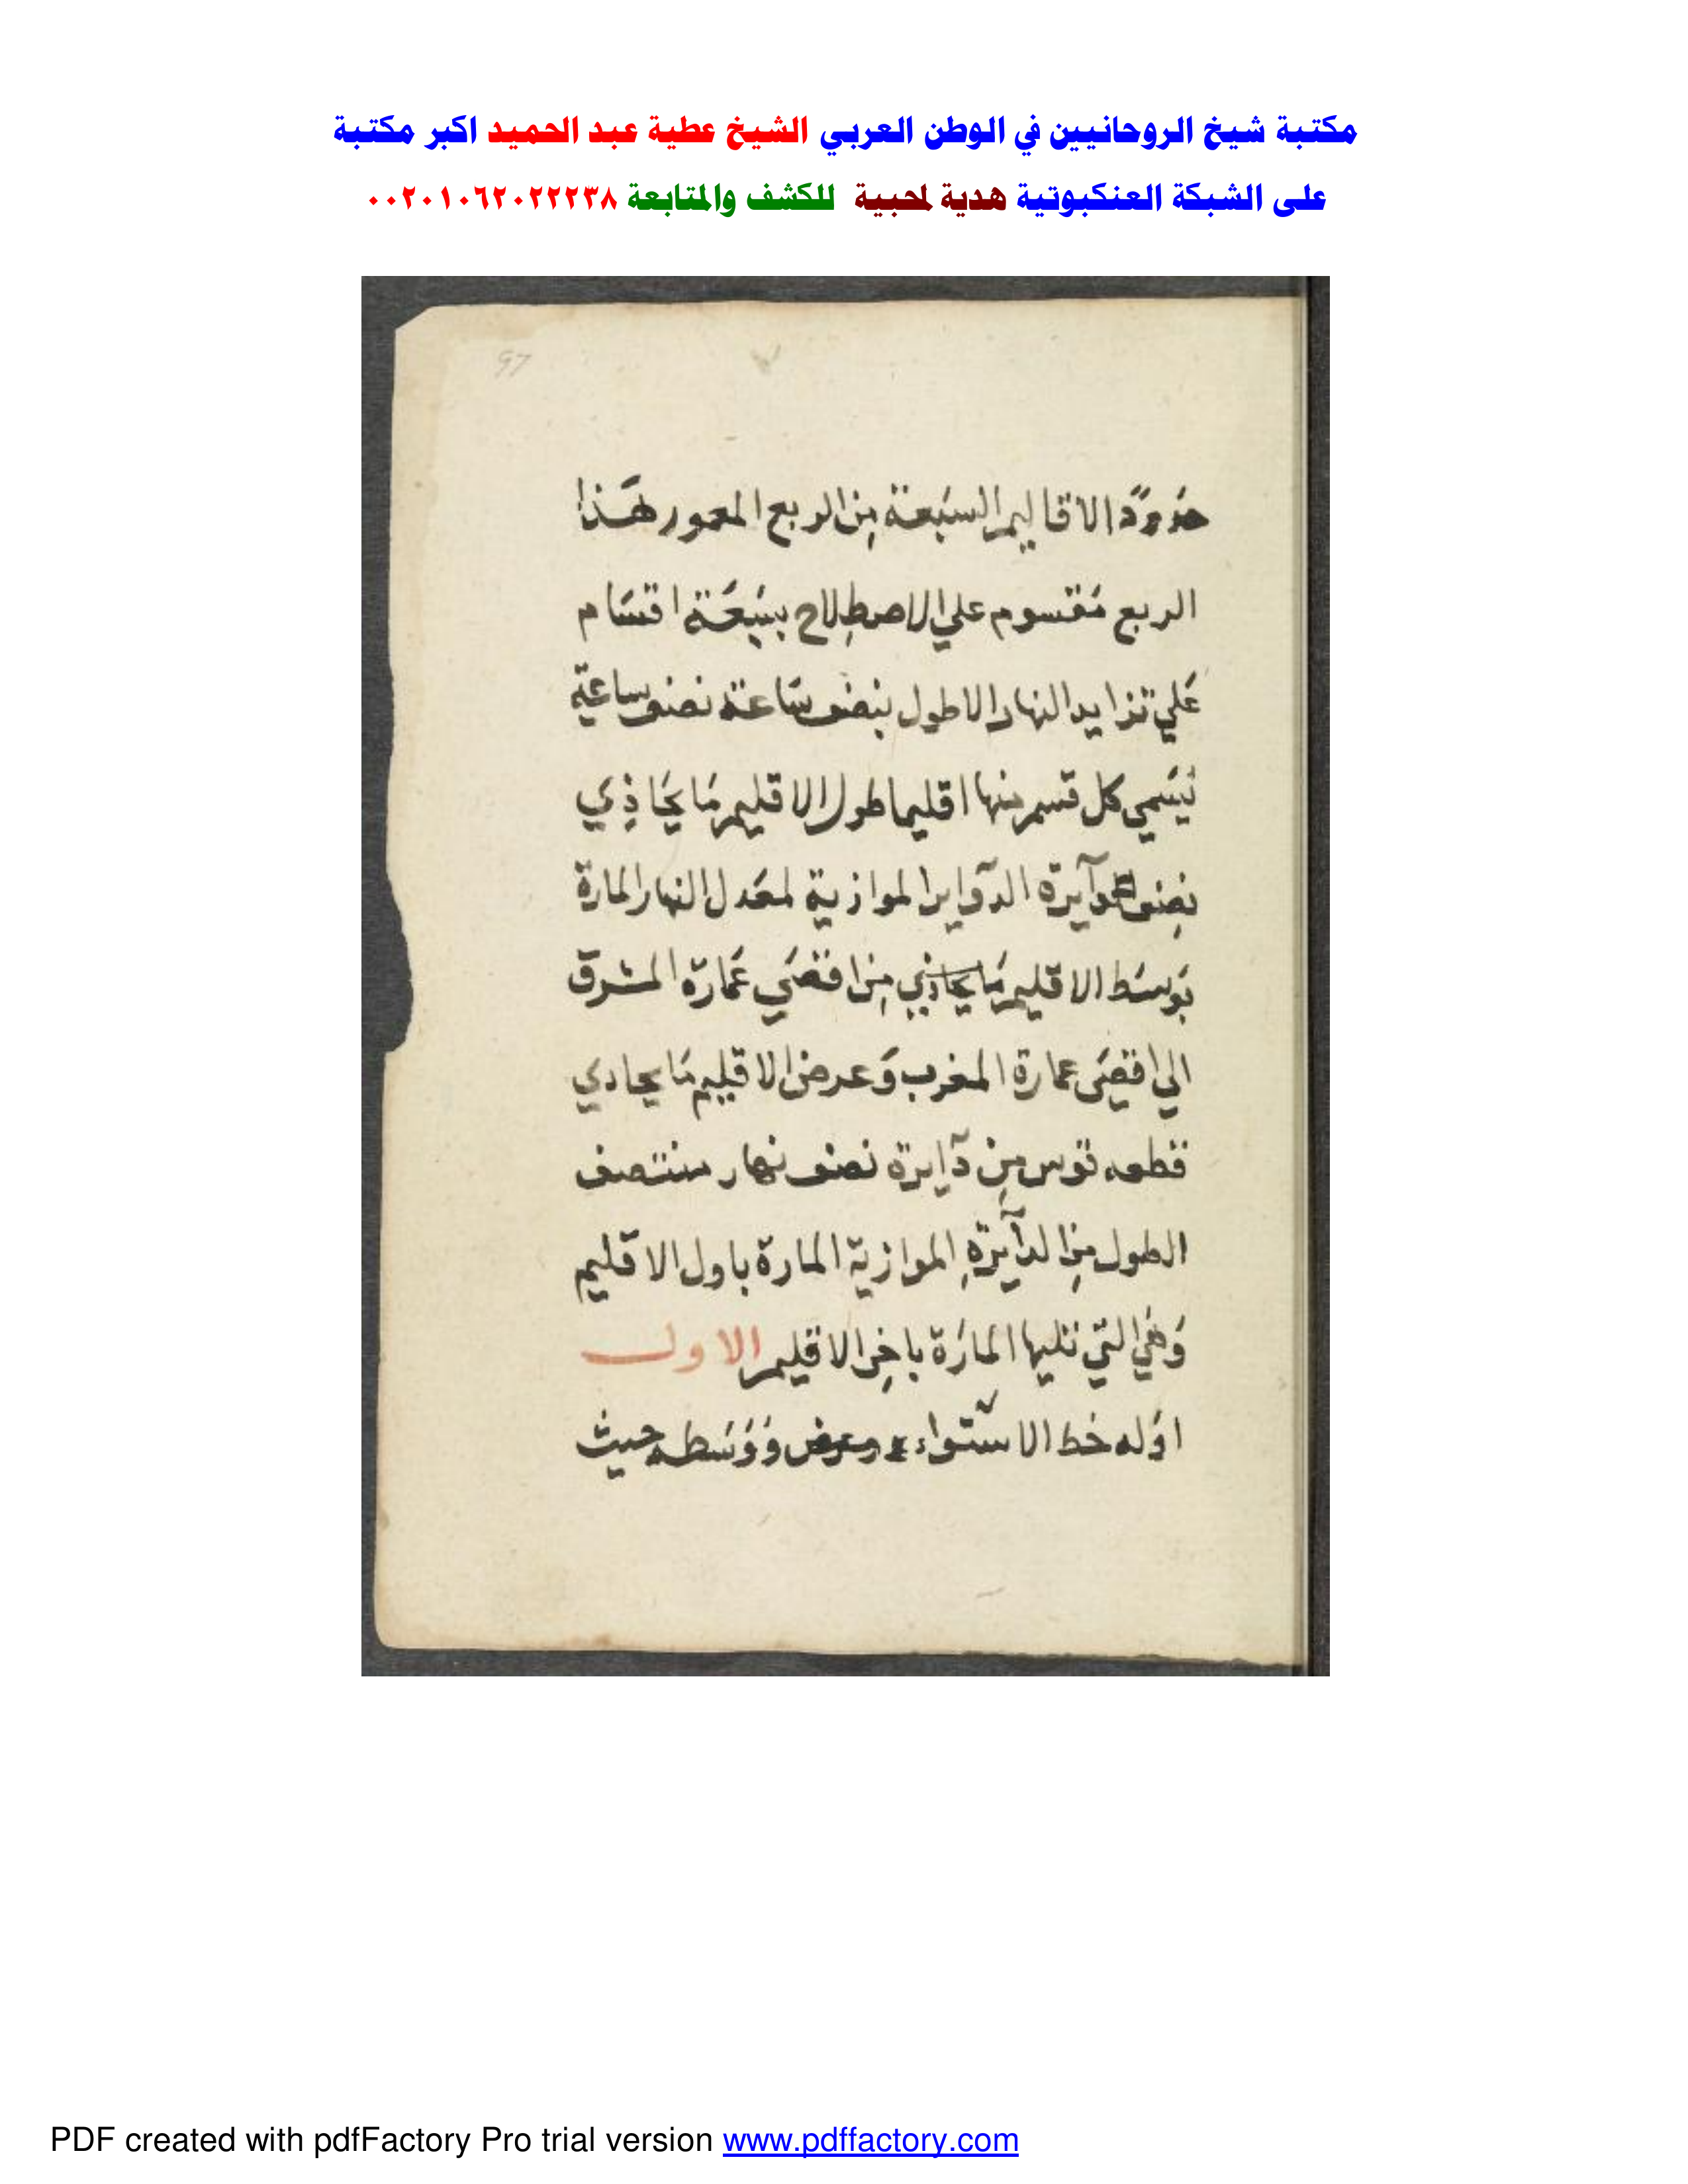 مكتبة شيخ الروحانيين في الوطن العربي الشيخ عطية عبد الحميد اكبر مكتبة
على الشبكة العنكبوتية هدية لمحبية للكشف والمتابعة ٠٠٢٠١٠٦٢٠٢٢٢٣٨
97
حدود الاقاليم السبعة من الربع المعمور هذا
الربع مقسوم علي الاصطلاح بسبعة اقسام
علي تزايد النهار الاطول بنصف ساعة نصف ساعة
يسمي كل قسم منها اقليما طول الاقليم ما يحاذي
نصف دآيرة الدوايرا لموازية لمعدل النهار المارة
بوسط الاقليم ما يحاذي من اقصي عمارة المشرق
الي اقصى عمارة المغرب وعرض الاقليم ما يحادي
قطعه قوس من دآيرة نصف نهار منتصف
الطول من الدآيرة الموازية المارة باول الاقليم
وهي التي تليها المارة باخر الاقليم الاول
اوله خط الاستواء وعرض ووسطه حيث
PDF created with pdfFactory Pro trial version www.pdffactory.com